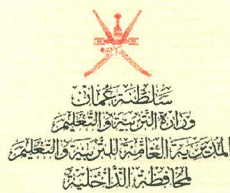 سلطنة عمان
وزارة التربية والتعليم
المديرية العامة للتربية والتعليم
لمحافظة الداخلية